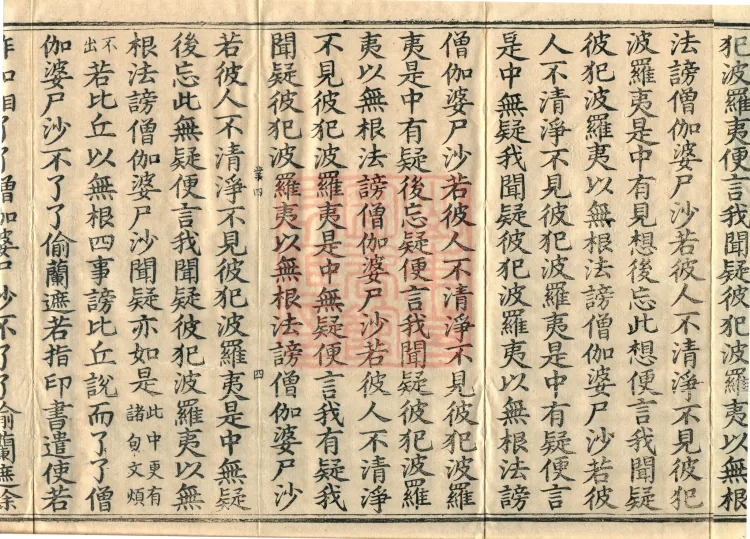 犯波羅夷便言我聞疑彼犯波羅夷以無根
法謗僧伽婆尸沙若彼人不清淨不見彼犯
波羅夷是中有見想後忘此想便言我聞疑
彼犯波羅夷以無根法謗僧伽婆尸沙若彼
人不清淨不見彼犯波羅夷是中有疑便言
是中無疑我聞疑彼犯波羅夷以無根法謗
僧伽婆尸沙若彼人不清淨不見彼犯波羅
夷是中有疑後忘疑便言我聞疑彼犯波羅
夷以無根法謗僧伽婆尸沙若彼人不清淨
不見彼犯波羅夷是中無疑便言我有疑我
聞疑彼犯波羅夷以無根法謗僧伽婆尸沙
四 四
若彼人不清淨不見彼犯波羅夷是中無疑
後忘此無疑便言我聞疑彼犯波羅夷以無
根法謗僧伽婆尸沙聞疑亦如是此中更有諸句文煩
不出若比丘以無根四事謗比丘說而了了僧
伽婆尸沙不了了偷蘭遮若指印書遣使若
作知相了了僧伽婆尸沙不了了偷蘭遮除